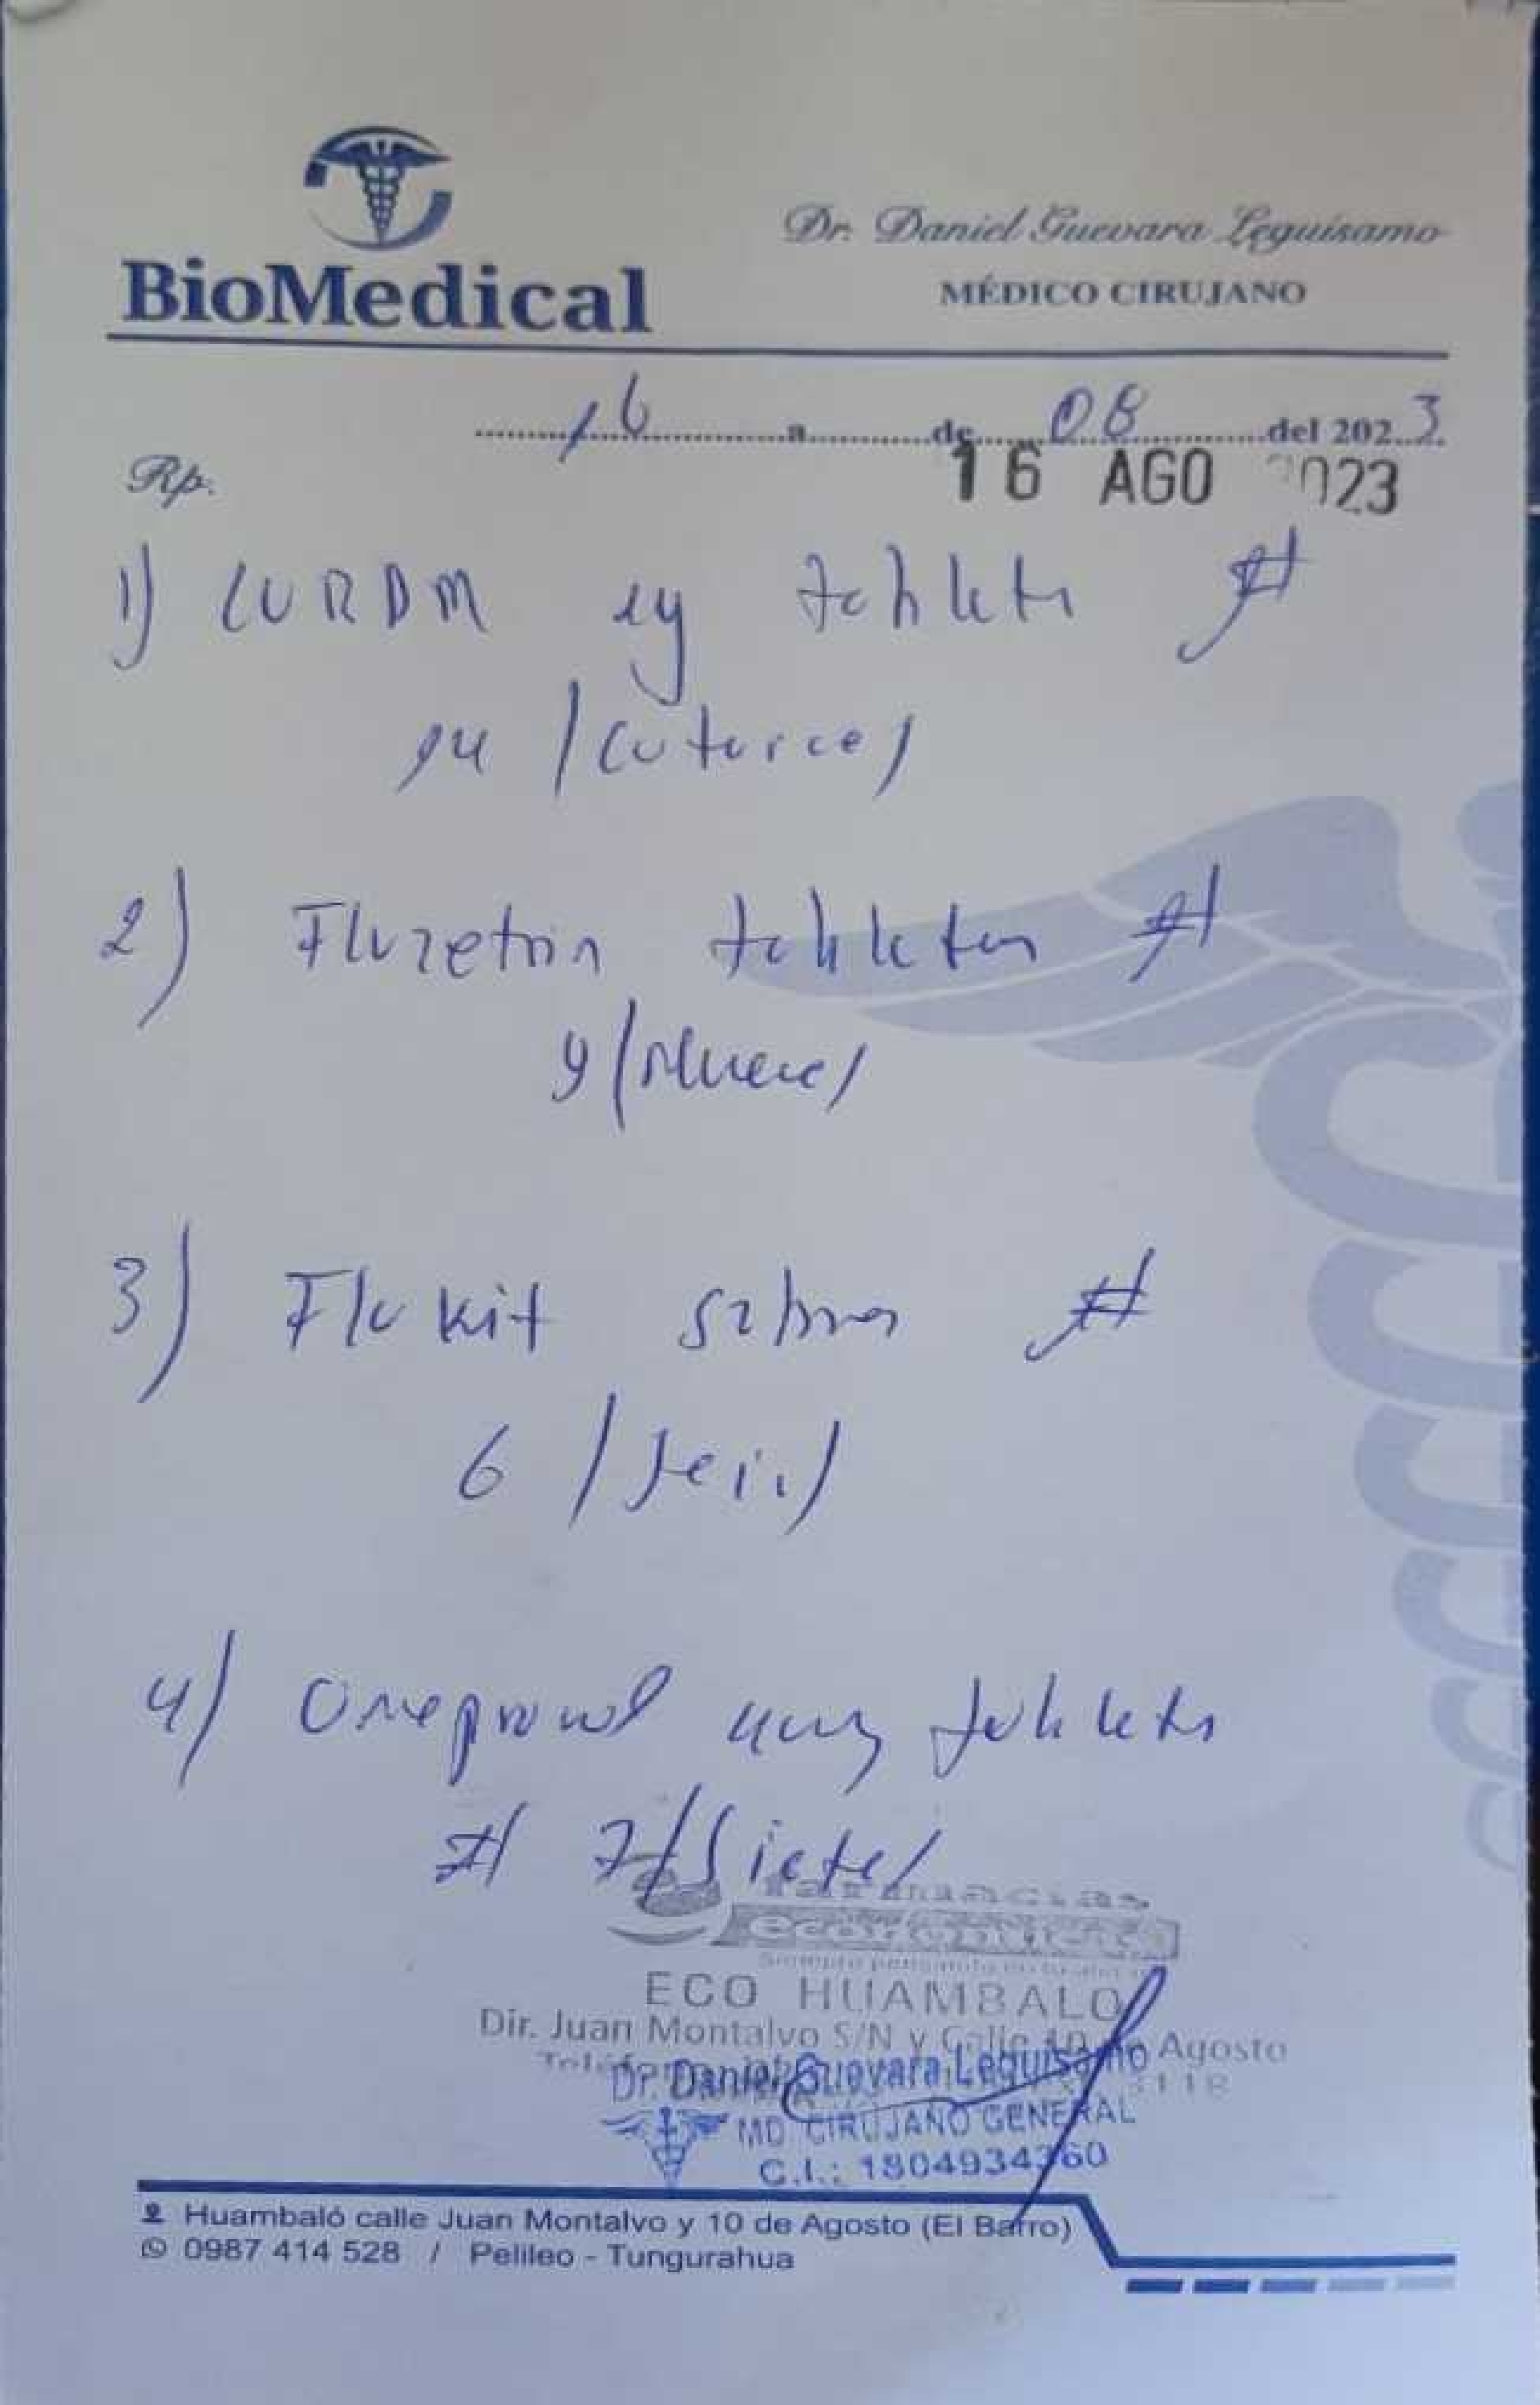 BioMedical
Dr. Daniel Guevara Leguísamo
MÉDICO CIRUJANO
16 a de 08 del 2023
16 AGO 2023
Rp.
1) CURAM 1g tabletas #
14 (catorce)
2) Fluzetrin tabletas #
9 (Nueve)
3) Flukit sobres #
6 (seis)
4) Omeprazol 40mg tabletas
# 7 (Siete)
farmacias
económicas
ECO HUAMBALO
Dir. Juan Montalvo S/N y Calle 10 de Agosto
Dr. Daniel Guevara Leguisamo
MD CIRUJANO GENERAL
C.I.: 1804934360
Huambaló calle Juan Montalvo y 10 de Agosto (El Barro)
0987 414 528 / Pelileo - Tungurahua